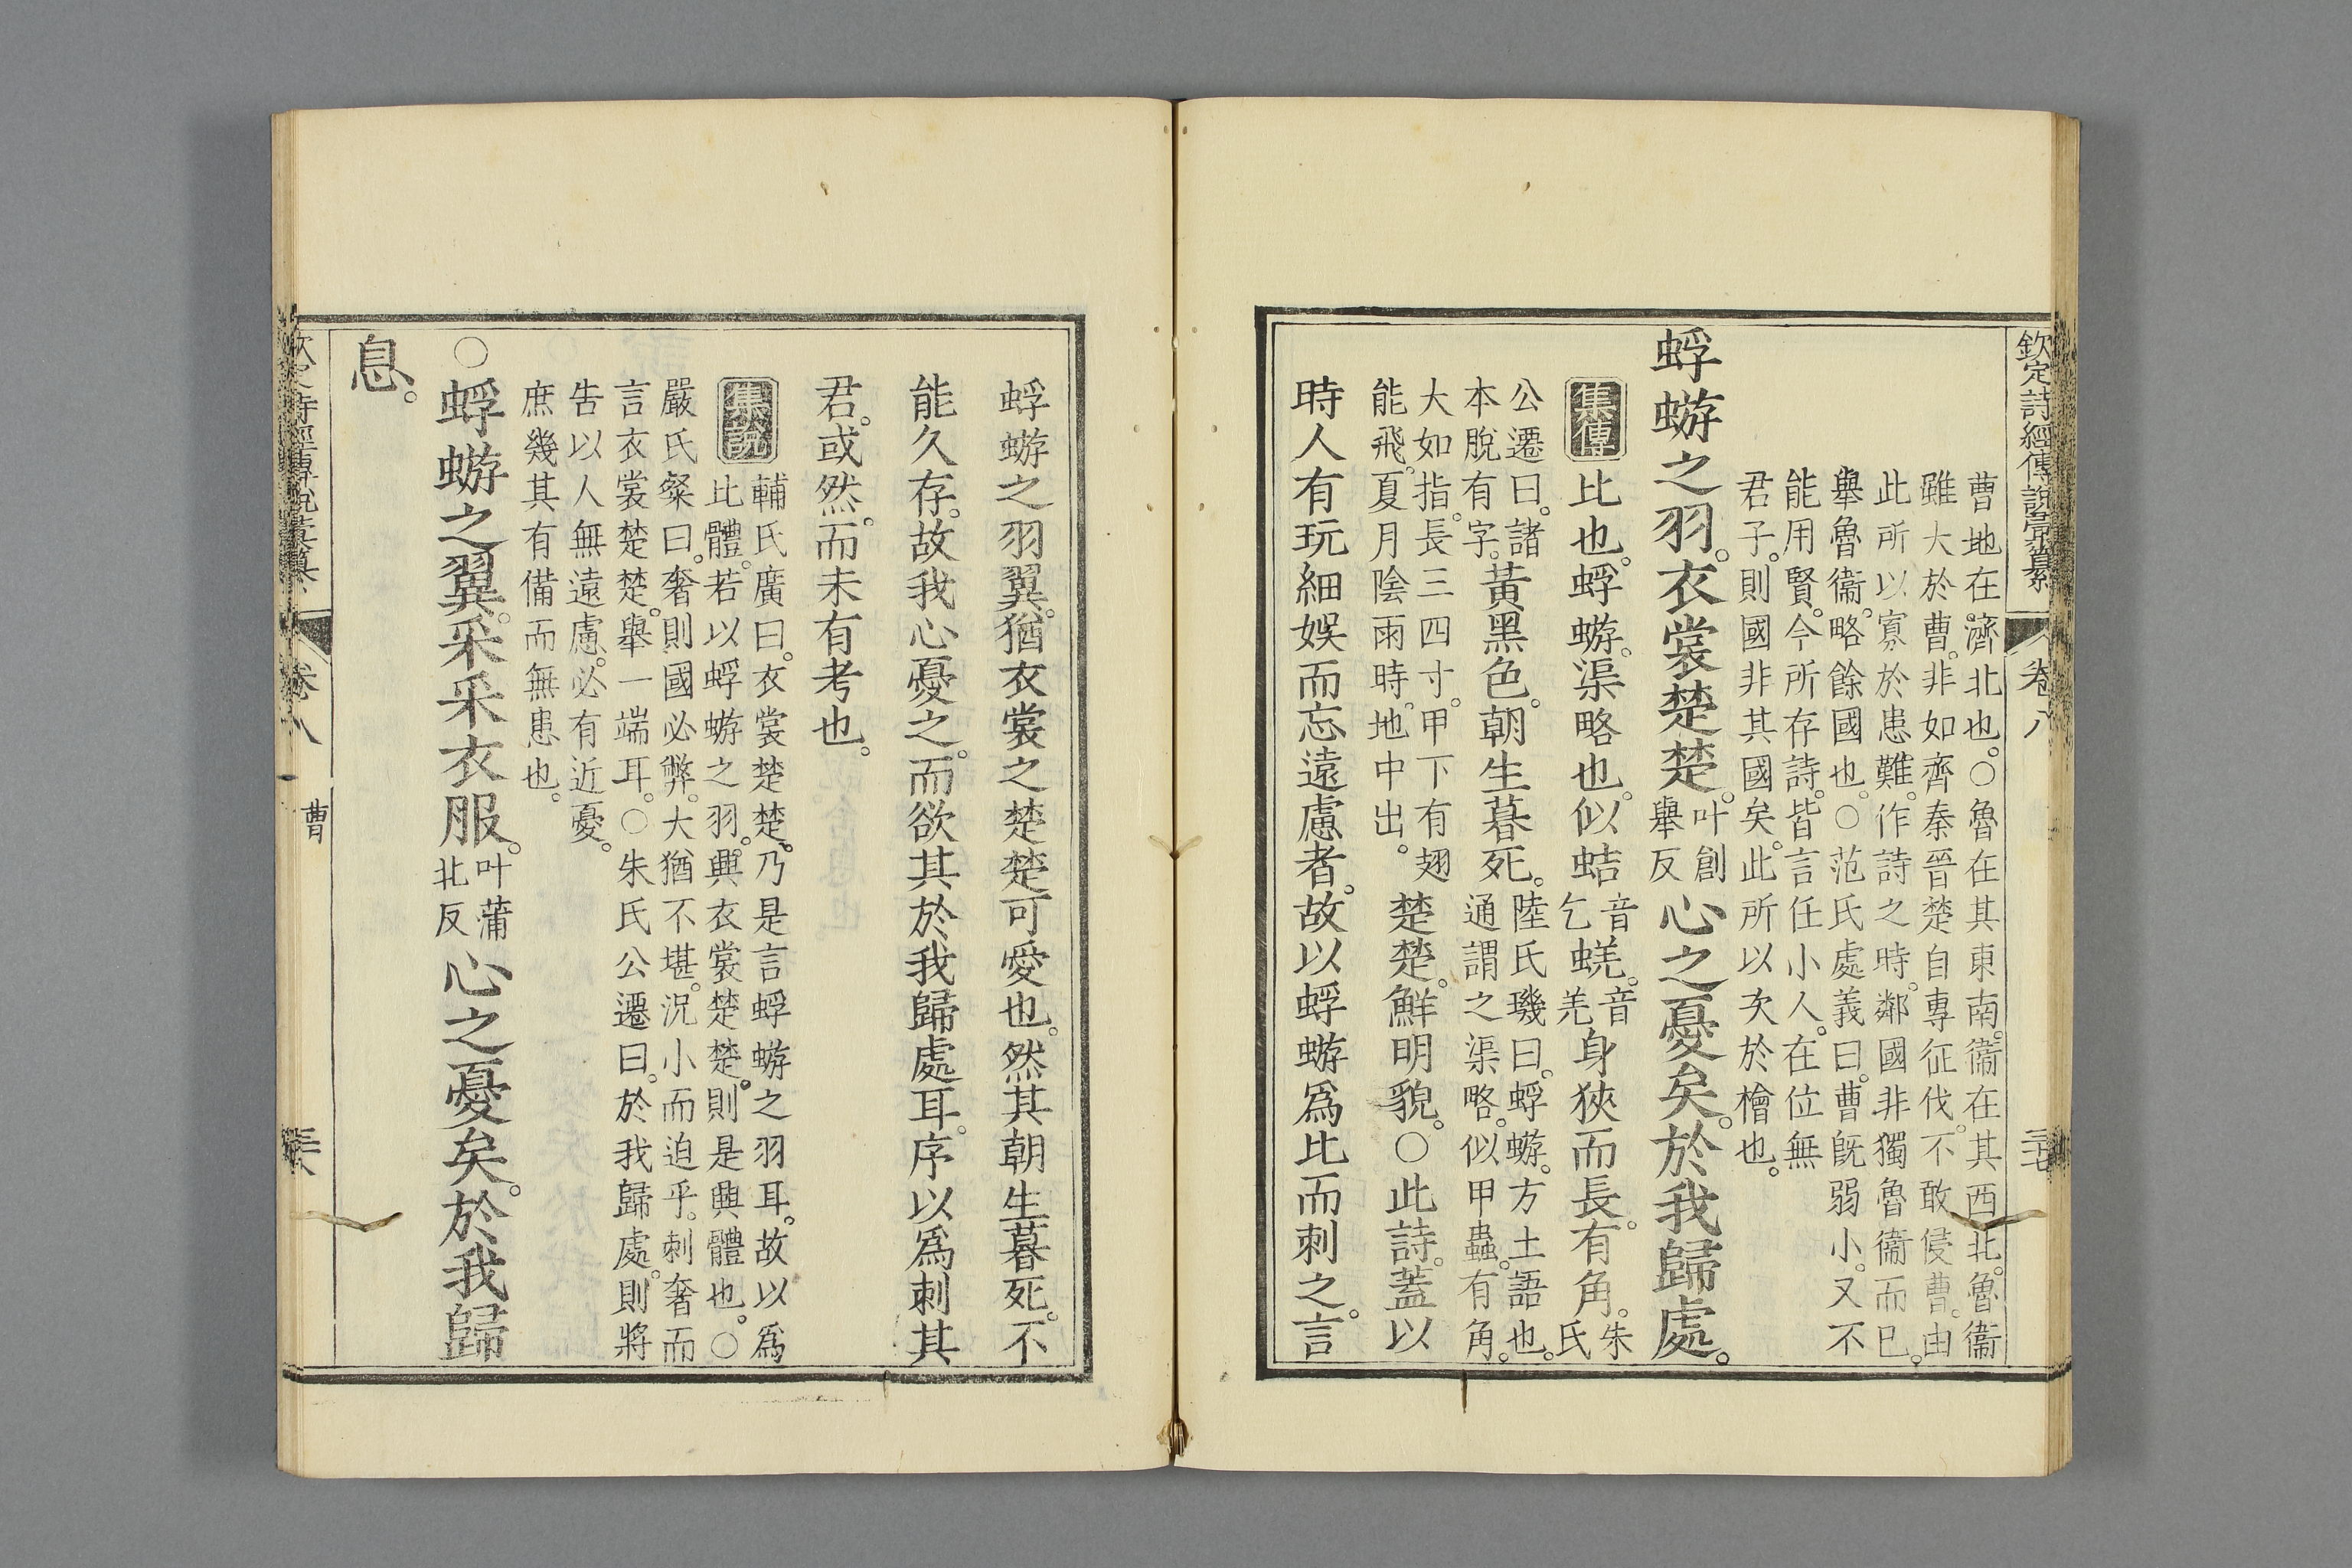 欽定詩經傳說彙纂
卷八
三七
曹地在濟北也。○魯在其東南。衞在其西北。魯衞
雖大於曹。非如齊秦晉楚自專征伐。不敢侵曹。由
此所以寡於患難。作詩之時。鄰國非獨魯衞而已。
舉魯衞。略餘國也。○范氏處義曰。曹旣弱小。又不
能用賢。今所存詩。皆言任小人。在位無
君子。則國非其國矣。此所以次於檜也。
蜉蝣之羽。衣裳楚楚。叶創舉反心之憂矣。於我歸處。
集傳
比也。蜉蝣。渠略也。似蛣音乞蜣。音羌身狹而長。有角。朱氏
公遷曰。諸本脫有字。黃黑色。朝生暮死。陸氏璣曰。蜉蝣。方土語也。通謂之渠略。似甲蟲。有角。
大如指。長三四寸。甲下有翅能飛。夏月陰雨時。地中出。楚楚。鮮明貌。○此詩。蓋以
時人有玩細娛而忘遠慮者。故以蜉蝣爲比而刺之。言
蜉蝣之羽翼。猶衣裳之楚楚可愛也。然其朝生暮死。不
能久存。故我心憂之。而欲其於我歸處耳。序以爲刺其
君。或然。而未有考也。
集說
輔氏廣曰。衣裳楚楚。乃是言蜉蝣之羽耳。故以爲
比體。若以蜉蝣之羽。興衣裳楚楚。則是興體也。○
嚴氏粲曰。奢則國必弊。大猶不堪。況小而迫乎。刺奢而
言衣裳楚楚。舉一端耳。○朱氏公遷曰。於我歸處。則將
告以人無遠慮。必有近憂。
庶幾其有備而無患也。
○蜉蝣之翼。采采衣服。叶蒲北反心之憂矣。於我歸
息。
卷八
曹